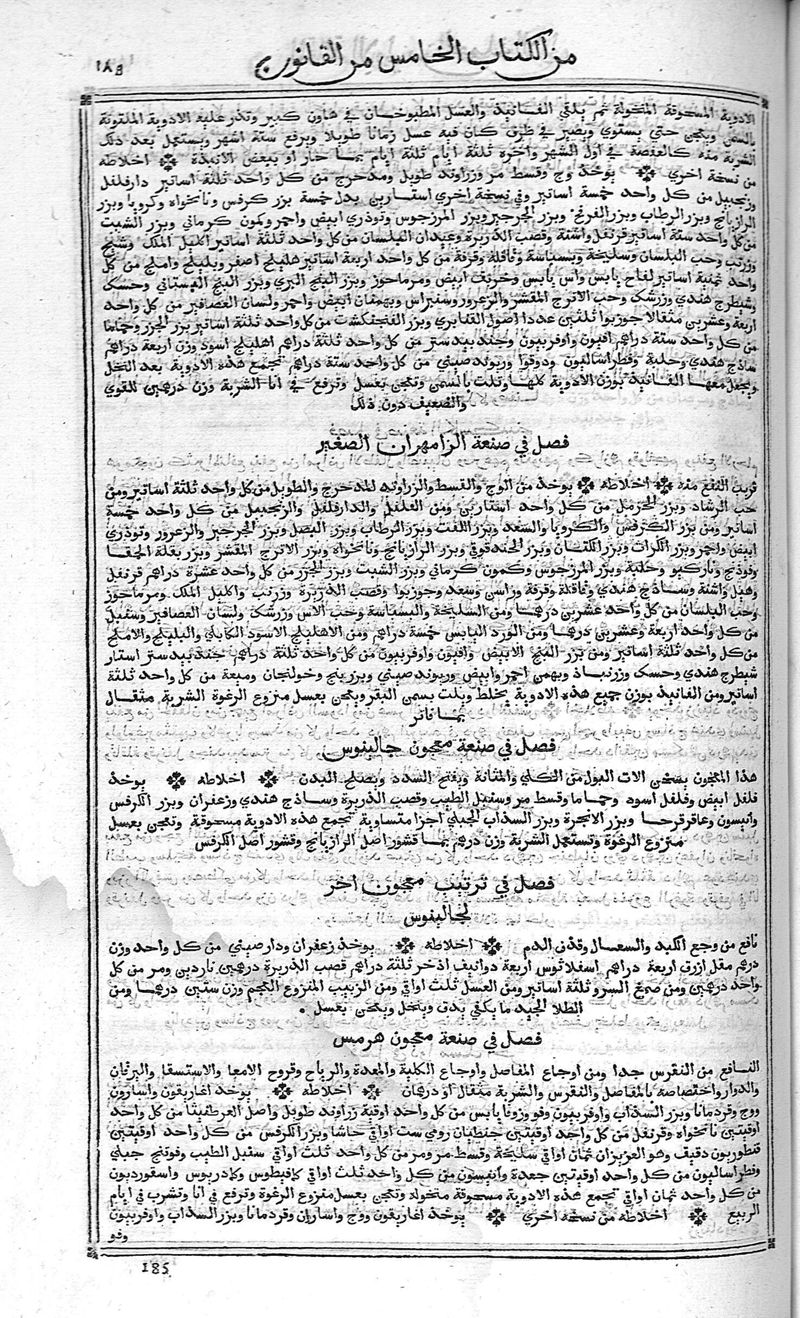 من الكتاب الخامس من القانون
١٨٥
الادوية المسحوقة المنخولة ثم يلقي الفانيذ والعسل المطبوخان في هاون كبير وتذر عليه الادوية الملتوتة
بالسمن ويعجن حتي يستوي ويصير في ظرف كان فيه عسل زمانا طويلا ويرفع ستة اشهر ويستعمل بعد ذلك
الشربة منه كالعفصة في اول الشهر واخره ثلثة ايام ثلثة ايام بماء حار او ببعض الانبذة اخلاطه
من نسخة اخري يوخذ وج وقسط مر وزراوند طويل ومدحرج من كل واحد ثلثة اساتير دارفلفل
وزنجبيل من كل واحد خمسة اساتير وفي نسخة اخري استارين بدل خمسة بزر كرفس ونانخواه وكرويا وبزر
الرازيانج وبزر الرطاب وبزر الفرنج وبزر الجرجير وبزر المرزجوس وتوذري ابيض واحمر وكمون كرماني وبزر الشبت
من كل واحد ستة اساتير قرنفل واشنة وقصب الذريرة وعيدان البلسان من كل واحد ثلثة اساتير اكليل الملك وشيح
وزرنب وحب البلسان وسليخة وبسباسة وقاقلة وقرفة من كل واحد اربعة اساتير هليلج اصفر وبليلج واملج من كل
واحد ثمنية اساتير لفاح يابس واس يابس وخربق ابيض ومرماحوز وبزر البنج البري وبزر البنج البستاني وحسك
وشيطرج هندي وزرشك وحب الاترج المقشر والزعرور وسنبراس وبهمنان ابيض واحمر ولسان العصافير من كل واحد
اربعة وعشرين مثقالا جوزبوا ثلثين عددا اصول القنابري وبزر الفنجنكشت من كل واحد ثلثة اساتير بزر الجزر وحماما
من كل واحد ستة دراهم افيون واوفربيون وجندبيدستر من كل واحد ثلثة دراهم اهليلج اسود وزن اربعة دراهم
ساذج هندي وحلبة وفطراساليون ودوقوا وريوند صيني من كل واحد ستة دراهم تجمع هذه الادوية بعد النخل
ويجعل معها الفانيذ بوزن الادوية كلها وتلت بالسمن وتعجن بعسل وترفع في انا الشربة وزن درهمين للقوي
والضعيف دون ذلك
فصل في صنعة الزامهران الصغير
قريب النفع منه اخلاطه يوخذ من الوج والقسط والزراوند المدحرج والطويل من كل واحد ثلثة اساتير ومن
حب الرشاد وبزر الحرمل من كل واحد استارين ومن الفلفل والدارفلفل والزنجبيل من كل واحد خمسة
اساتير ومن بزر الكرفس والكرويا والسعد وبزر اللفت وبزر الرطاب وبزر البصل وبزر الجرجير والزعرور وتوذري
ابيض واحمر وبزر الكراث وبزر الكتان وبزر الحندقوقي وبزر الرازيانج ونانخواه وبزر الاترج المقشر وبزر بقلة الحمقا
وفوذنج وناركيو وحلبة وبزر المرزجوس وكمون كرماني وبزر الشبت وبزر الجزر من كل واحد عشرة دراهم قرنفل
وهيل واشنة وساذج هندي وقاقلة وقرفة وراسن وسعد وجوزبوا وقصب الذريرة وزرنب واكليل الملك ومرماحوز
وحب البلسان من كل واحد عشرين درهما ومن السليخة والبسباسة وحب الاس وزرشك ولسان العصافير وسنبل
من كل واحد اربعة وعشرين درهما ومن الورد اليابس خمسة دراهم ومن الاهليلج الاسود الكابلي والبليلج والاملج
من كل واحد ثلثة اساتير ومن بزر البنج الابيض وافيون واوفربيون من كل واحد ثلثة دراهم جندبيدستر استار
شيطرج هندي وحسك وزرنباذ وبهمن احمر وابيض وريوند صيني وبرنج وخولنجان وميعة من كل واحد ثلثة
اساتير ومن الفانيذ بوزن جميع هذه الادوية يخلط ويلت بسمن البقر ويعجن بعسل منزوع الرغوة الشربة مثقال
بماء فاتر
فصل في صنعة معجون جالينوس
هذا المعجون يسخن الات البول من الكلي والمثانة ويفتح السدد ويصلح البدن اخلاطه يوخذ
فلفل ابيض وفلفل اسود وحماما وقسط مر وسنبل الطيب وقصب الذريرة وساذج هندي وزعفران وبزر الكرفس
وانيسون وعاقرقرحا وبزر الانجرة وبزر السذاب الجبلي اجزا متساوية تجمع هذه الادوية مسحوقة وتعجن بعسل
منزوع الرغوة وتستعمل الشربة وزن درهم بماء قشور اصل الرازيانج وقشور اصل الكرفس
فصل في ترتيب معجون اخر
لجالينوس
نافع من وجع الكبد والسعال وقذف الدم اخلاطه يوخذ زعفران ودارصيني من كل واحد وزن
درهم مقل ازرق اربعة دراهم اسفلاثوس اربعة دوانيف اذخر ثلثة دراهم قصب الذريرة درهمين ناردين ومر من كل
واحد درهمين ومن صمغ السرو ثلثة اساتير ومن العسل ثلث اواقي ومن الزبيب المنزوع العجم وزن ستين درهما ومن
الطلا الجيد ما يكفي يدق وينخل ويعجن بعسل
فصل في صنعة معجون هرمس
النافع من النقرس جدا ومن اوجاع المفاصل واوجاع الكلية والمعدة والرياح وقروح الامعا والاستسقا واليرقان
والدوار واختصاصه بالمفاصل والنقرس والشربة مثقال او درهمان اخلاطه يوخذ اغاريقون واسارون
ووج وقردمانا وبزر السذاب واوفربيون وفو وزوفا يابس من كل واحد اوقية زراوند طويل واصل العرطنيثا من كل واحد
اوقيتين نانخواه وقرنفل من كل واحد اوقيتين جنطيان رومي ست اواقي حاشا وبزر الكرفس من كل واحد اوقيتين
قنطوريون دقيق وهو العزيز ثمان اواقي سليخة وقسط مر ومر من كل واحد ثلث اواقي سنبل الطيب وفوتنج جبلي
وفطراساليون من كل واحد اوقيتين جعدة وانيسون من كل واحد ثلث اواقي كمافيطوس وكمادريوس واسقورديون
من كل واحد ثمان اواقي تجمع هذه الادوية مسحوقة منخولة وتعجن بعسل منزوع الرغوة وترفع في انا وتشرب في ايام
الربيع اخلاطه من نسخة اخري يوخذ اغاريقون ووج واسارون وقردمانا وبزر السذاب واوفربيون
وفو
185